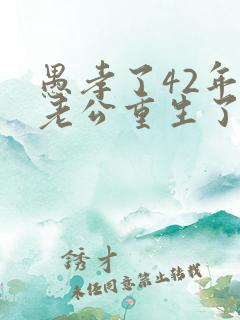 愚孝了42年
老公重生了
锈才
未经同意禁止转载